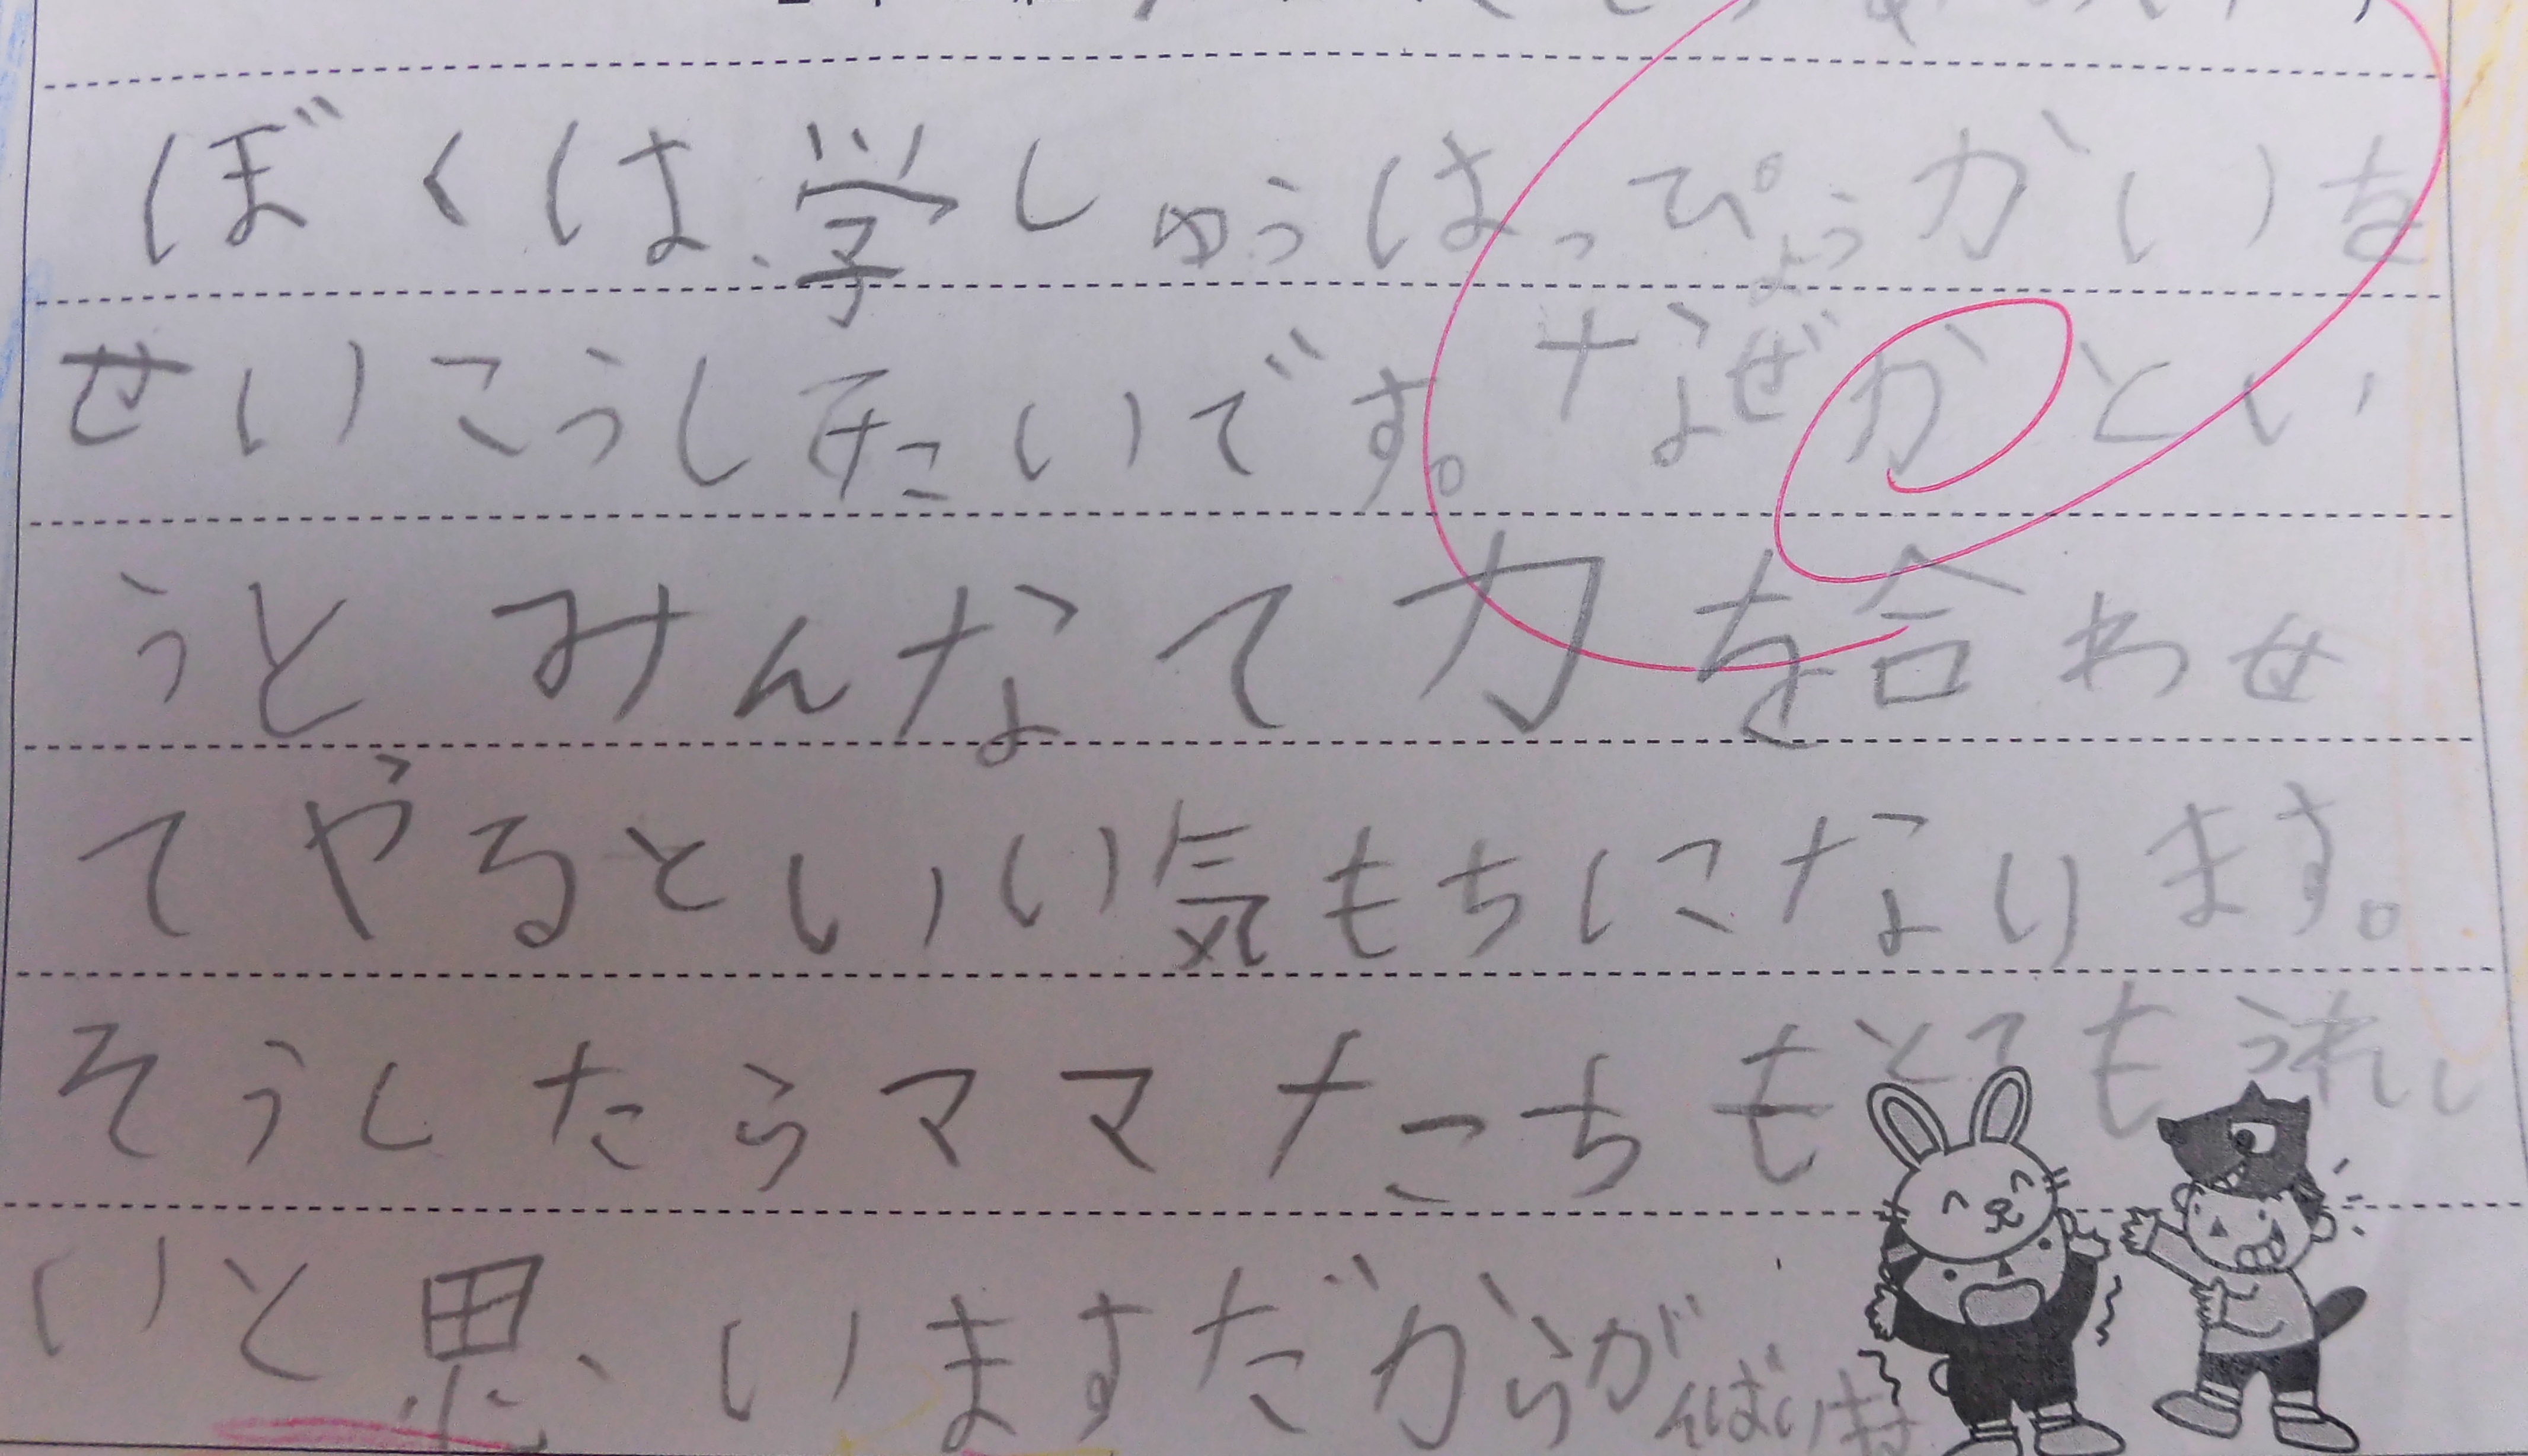 ぼくは、学しゅうはっぴょうかいを
せいこうしたいです。なぜかとい
うとみんなて力を合わせ
てやるといいい気もちになります。
そうしたらママたちもとてもうれし
いと思いますだからがんば